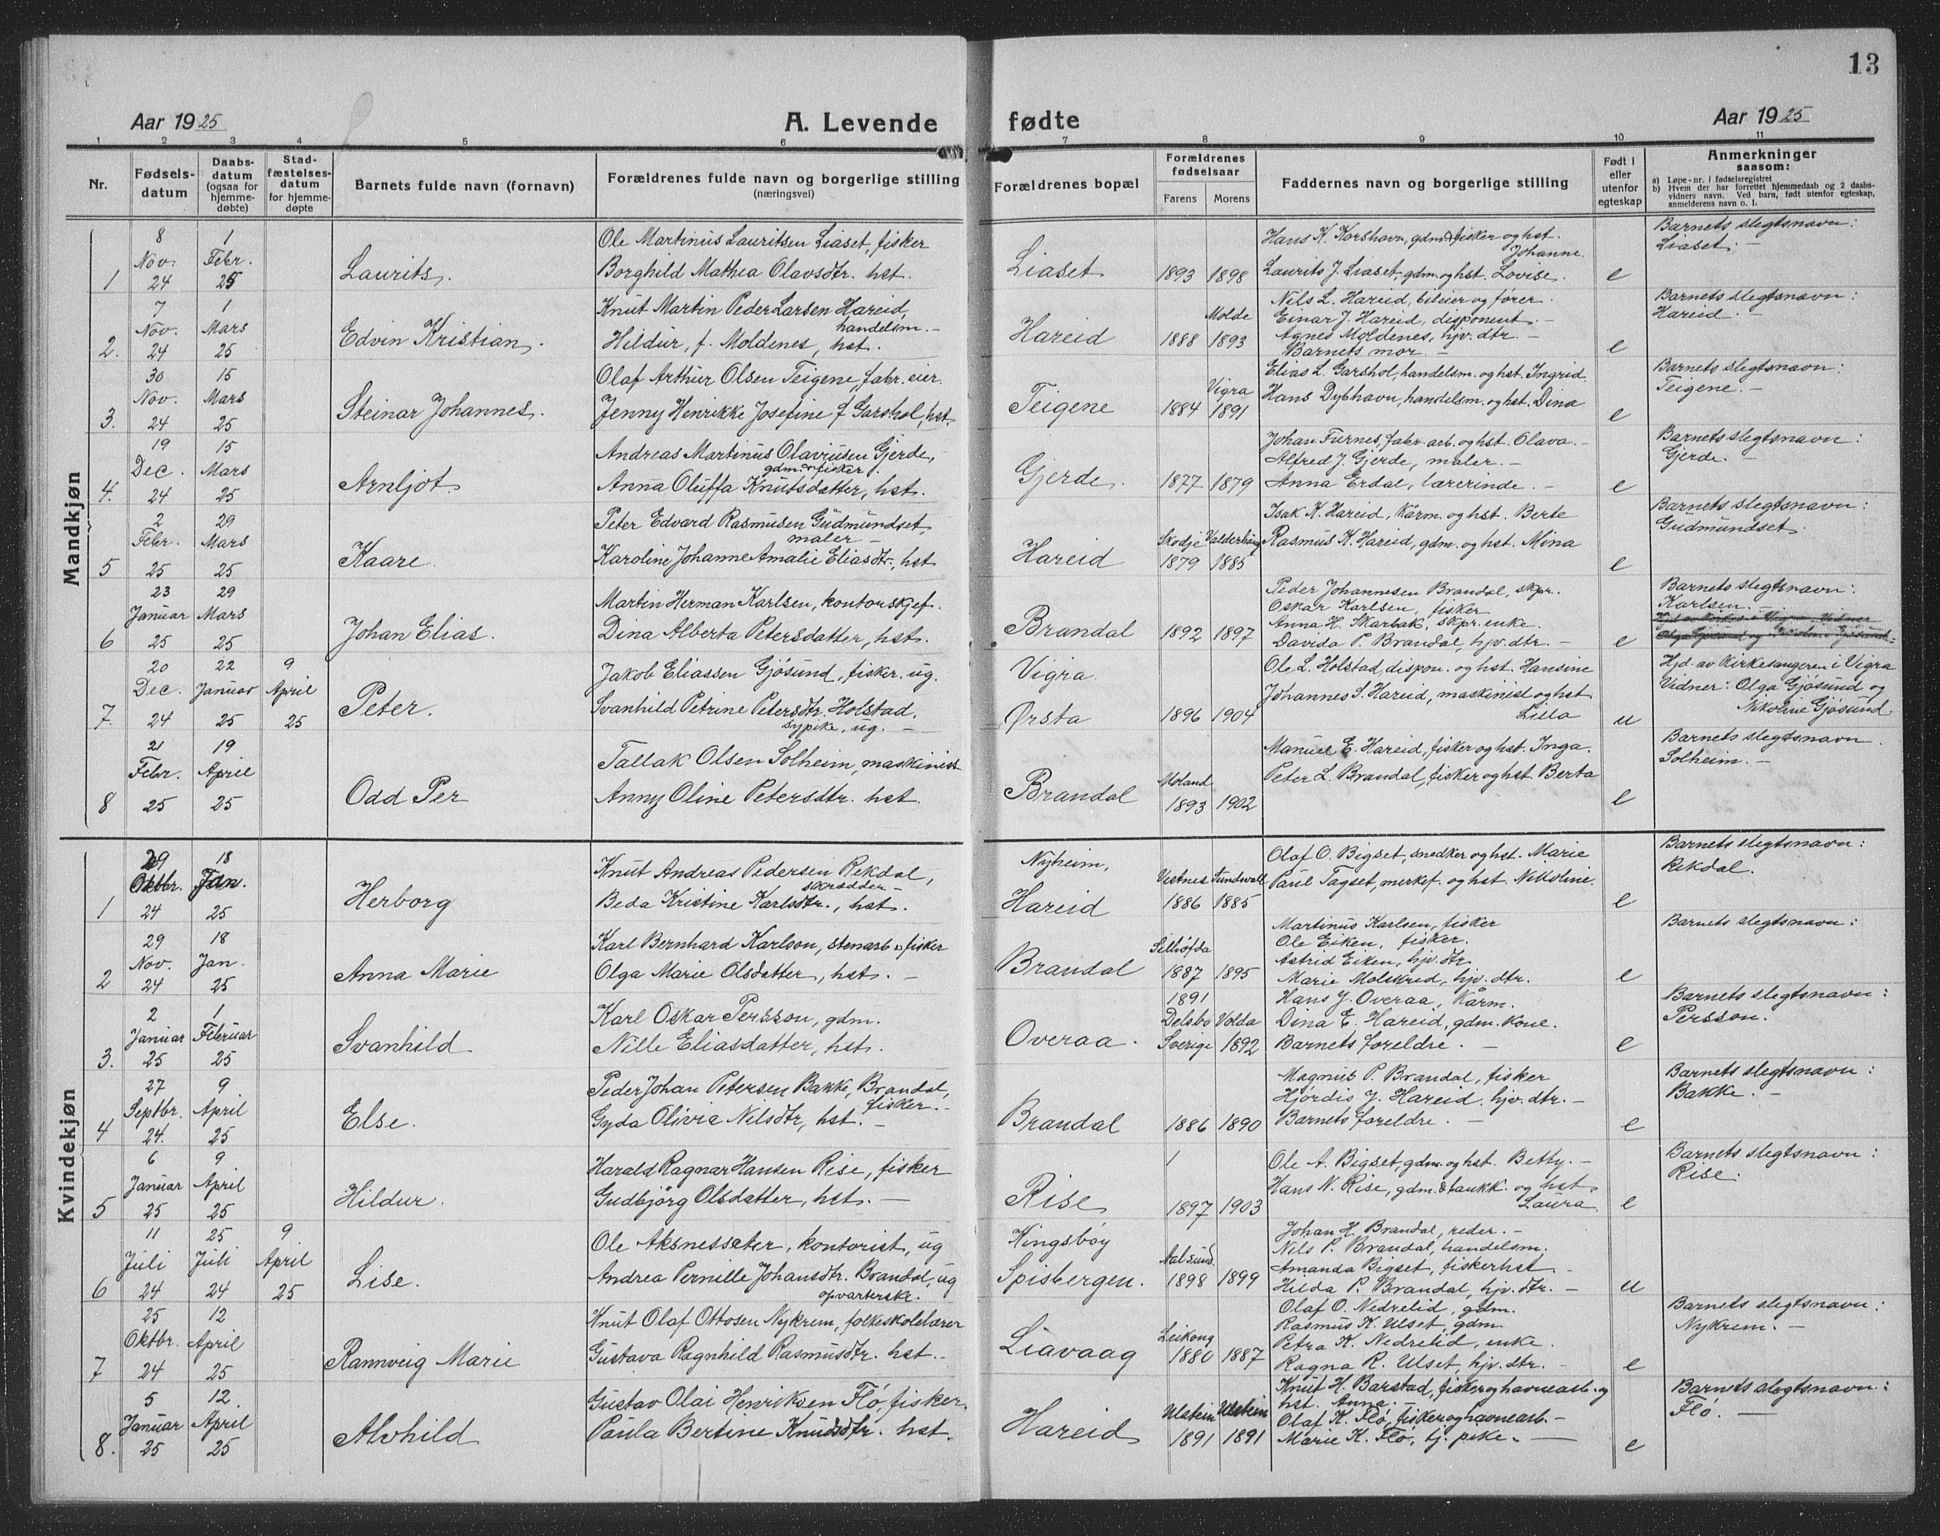 13
Aar 1925
A. Levende fødte
Aar 1925
1 2 3 4 5 6 7 8 9 10 11
Nr.
Fødsels-
datum
Daabs-
datum
(ogsaa for
hjemme-
døbte)
Stad-
fæstelses-
datum
for hjemme-
døpte
Barnets fulde navn (fornavn)
Forældrenes fulde navn og borgerlige stilling
(næringsvei)
Forældrenes bopæl
Forældrenes
fødselsaar
Farens Morens
Faddernes navn og borgerlige stilling
Født i
eller
utenfor
egteskap
Anmerkninger
saasom:
a) Løpe-nr. i fødselsregistret
b) Hvem der har forrettet hjemmedaab og 2 daabs-
vidners navn. Ved barn, født utenfor egteskap,
anmelderens navn o. l.
Mandkjøn
1
8
Nov.
24
1
Febr.
25
Laurits.
Ole Martinus Lauritsen Liaset, fisker
Borghild Mathea Olavsdtr. hst.
Liaset
1893 1898
Hans K. Korshavn, gdm & fisker og hst.
Johanne.
Laurits J. Liaset, gdm. og hst. Lovise.
e
Barnets slegtsnavn:
Liaset. -
2.
7
Nov.
24
1
Mars
25
Edvin Kristian.
Knut Martin Peder Larsen Hareid,
handelsm. -
Hildur, f. Moldenes, hst.
Hareid
Molde
1888 1893
Nils L. Hareid, bileier og fører.
Einar J. Hareid, disponent. -
Agnes Moldenes, hjv. dtr. -
Barnets mor. -
e
Barnets slegtsnavn:
Hareid. -
3.
30
Nov.
24
15
Mars
25
Steinar Johannes.
Olaf Arthur Olsen Teigene, fabr. eier.
Jenny Henrikke Josefine f. Garshol, hst.
Teigene
Vigra
1884 1891
Elias L. Garshol, handelsm. og hst. Ingrid.
Hans Dybhavn, handelsm. og hst. Dina
e
Barnets slegtsnavn:
Teigene. -
4.
19
Dec.
24
15
Mars
25
Arnljot.
Andreas Martinus Olaviusen Gjerde,
gdm. & fisker.
Anna Oluffa Knutsdatter, hst.
Gjerde.
1877 1879
Johan Furnes, fabr. arb. og hst. Olava. -
Alfred J. Gjerde, maler. -
Anna Erdal, lærerinde. -
e
Barnets slegtsnavn:
Gjerde. -
5
2
Febr.
25
29
Mars
25
Kaare.
Peter Edvard Rasmusen Gudmundset,
maler -
Karoline Johanne Amalie Eliasdtr., hst
Hareid
Skodje Valderhaug
1879 1885
Isak K. Hareid, kårm. og hst. Berte
Rasmus K. Hareid, gdm. og hst. Mina
e
Barnets slegtsnavn:
Gudmundset.
6
23
Januar
25
29
Mars
25
Johan Elias.
Martin Herman Karlsen, kontorskjef.
Dina Alberta Petersdatter, hst.
Brandal
1892 1897
Peder Johannesen Brandal, skpr.
Oskar Karlsen, fisker
Anna H. Skarbak, skpr. enke.
Davida P. Brandal, hjv. dtr. -
e
Barnets slegtsnavn:
Karlsen. -
7.
20
Dec.
24
22
Januar
25
9
April
25
Peter.
Jakob Eliassen Gjøsund, fisker. ug.
Svanhild Petrine Petersdtr. Holstad,
sypike, ug. -
Vigra
Ørsta
1896 1904
Ole L. Holstad, dispon. og hst. Hansine
Johannes S. Hareid, maskinist og hst
Lilla
u
Hjd. av kirkesangeren i Vigra
Vidner: Olga Gjøsund og
Nikoline Gjøsund.
8
21
Febr.
25
19
April
25
Odd Per
Tallak Olsen Solheim, maskinist
Anny Oline Petersdtr. hst.
Brandal
Moland
1893 1902
Manuel E. Hareid, fisker og hst. Inga.
Peter L. Brandal, fisker og hst. Berta
e
Barnets slegtsnavn.
Solheim. -
Kvindekjøn
1
29
Oktbr.
24
18
Jan.
25
Herborg
Knut Andreas Pedersen Rekdal,
skrædder -
Beda Kristine Karlsdtr., hst.
Nyheim,
Hareid
Vestnes Sundsvall
1886 1885
Olaf O. Bigset, snedker og hst. Marie
Paul Tagset, merkef. og hst. Nikoline.
e
Barnets slegtsnavn:
Rekdal.
2
29
Nov.
24
18
Jan.
25
Anna Marie
Karl Bernhard Karlson, stenarb & fisker
Olga Marie Olsdatter, hst. -
Brandal
1887 1895
Martinus Karlsen, fisker
Ole Eiken, fisker.
Astrid Eiken, hjv. dtr
Marie Molskred, hjv. dtr.
e
Barnets slegtsnavn:
3.
2
Januar
25
1
Februar
25
Svanhild
Karl Oskar Persson, gdm.
Nille Eliasdatter, hst.
Overaa.
1891
Delsbo Volda
Sverige 1892
Hans J. Overaa, kårm.
Dina E. Hareid, gdm. kone.
Barnets foreldre. -
e
Barnets slegtsnavn:
Persson.
4
27
Septbr.
24.
9
April
25
Else.
Peder Johan Petersen Bakke, Brandal,
fisker. -
Gyda Olivia Nilsdtr, hst. -
Brandal
1886 1890
Magnus P. Brandal, fisker
Hjørdis J. Hareid, hjv. dtr. -
Barnets foreldre. -
e
Barnets slegtsnavn:
Bakke. -
5
6
Januar
25
9
April
25
Hildur.
Harald Ragnar Hansen Rise, fisker
Gudbjörg Olsdatter, hst. -
Rise
1897 1903
Ole A. Bigset, gdm. og hst. Betty. -
Hans N. Rise, gdm. & baukk. og hst.
Laura.
e
Barnets slegtsnavn:
Rise.
6
11
Juli
24
25
Juli
24
9
April
25
Lise.
Ole Aksnessæter, kontorist, ug
Andrea Pernille Johansdtr. Brandal, ug
opvarterske.
Kingsbøy
Spisbergen.
Aalsund.
1898 1899
Johan H. Brandal, reder. -
Nils P. Brandal, handelsm.
Amanda Bigset, fiskerhst -
Hilda P. Brandal, hjv. dtr. -
u
7
25
Oktbr.
24
12
April
25
Rannveig Marie
Knut Olaf Ottosen Nykrem, folkeskolelærer
Gustava Ragnhild Rasmusdtr. hst. -
Liavaag
Leikong
1880 1887
Olaf O. Nedrelid, gdm.
Rasmus K. Ulset, gdm.
Petra K. Nedrelid, enke.
Ragna R. Ulset, hjv. dtr. -
e
Barnets slegtsnavn:
Nykrem. -
8.
5
Januar
25
12.
April
25
Alvhild
Gustav Olai Henriksen Flø, fisker.
Paula Bertine Knudsdtr. hst.
Hareid
Ulstein Ulstein
1891 1891
Knut H. Barstad, fisker og havnearb. og
hst. Anna. -
Olaf K. Flø, fisker og havnearb. -
Marie K. Flø, tj. pike. -
e
Barnets slegtsnavn:
Flø. -